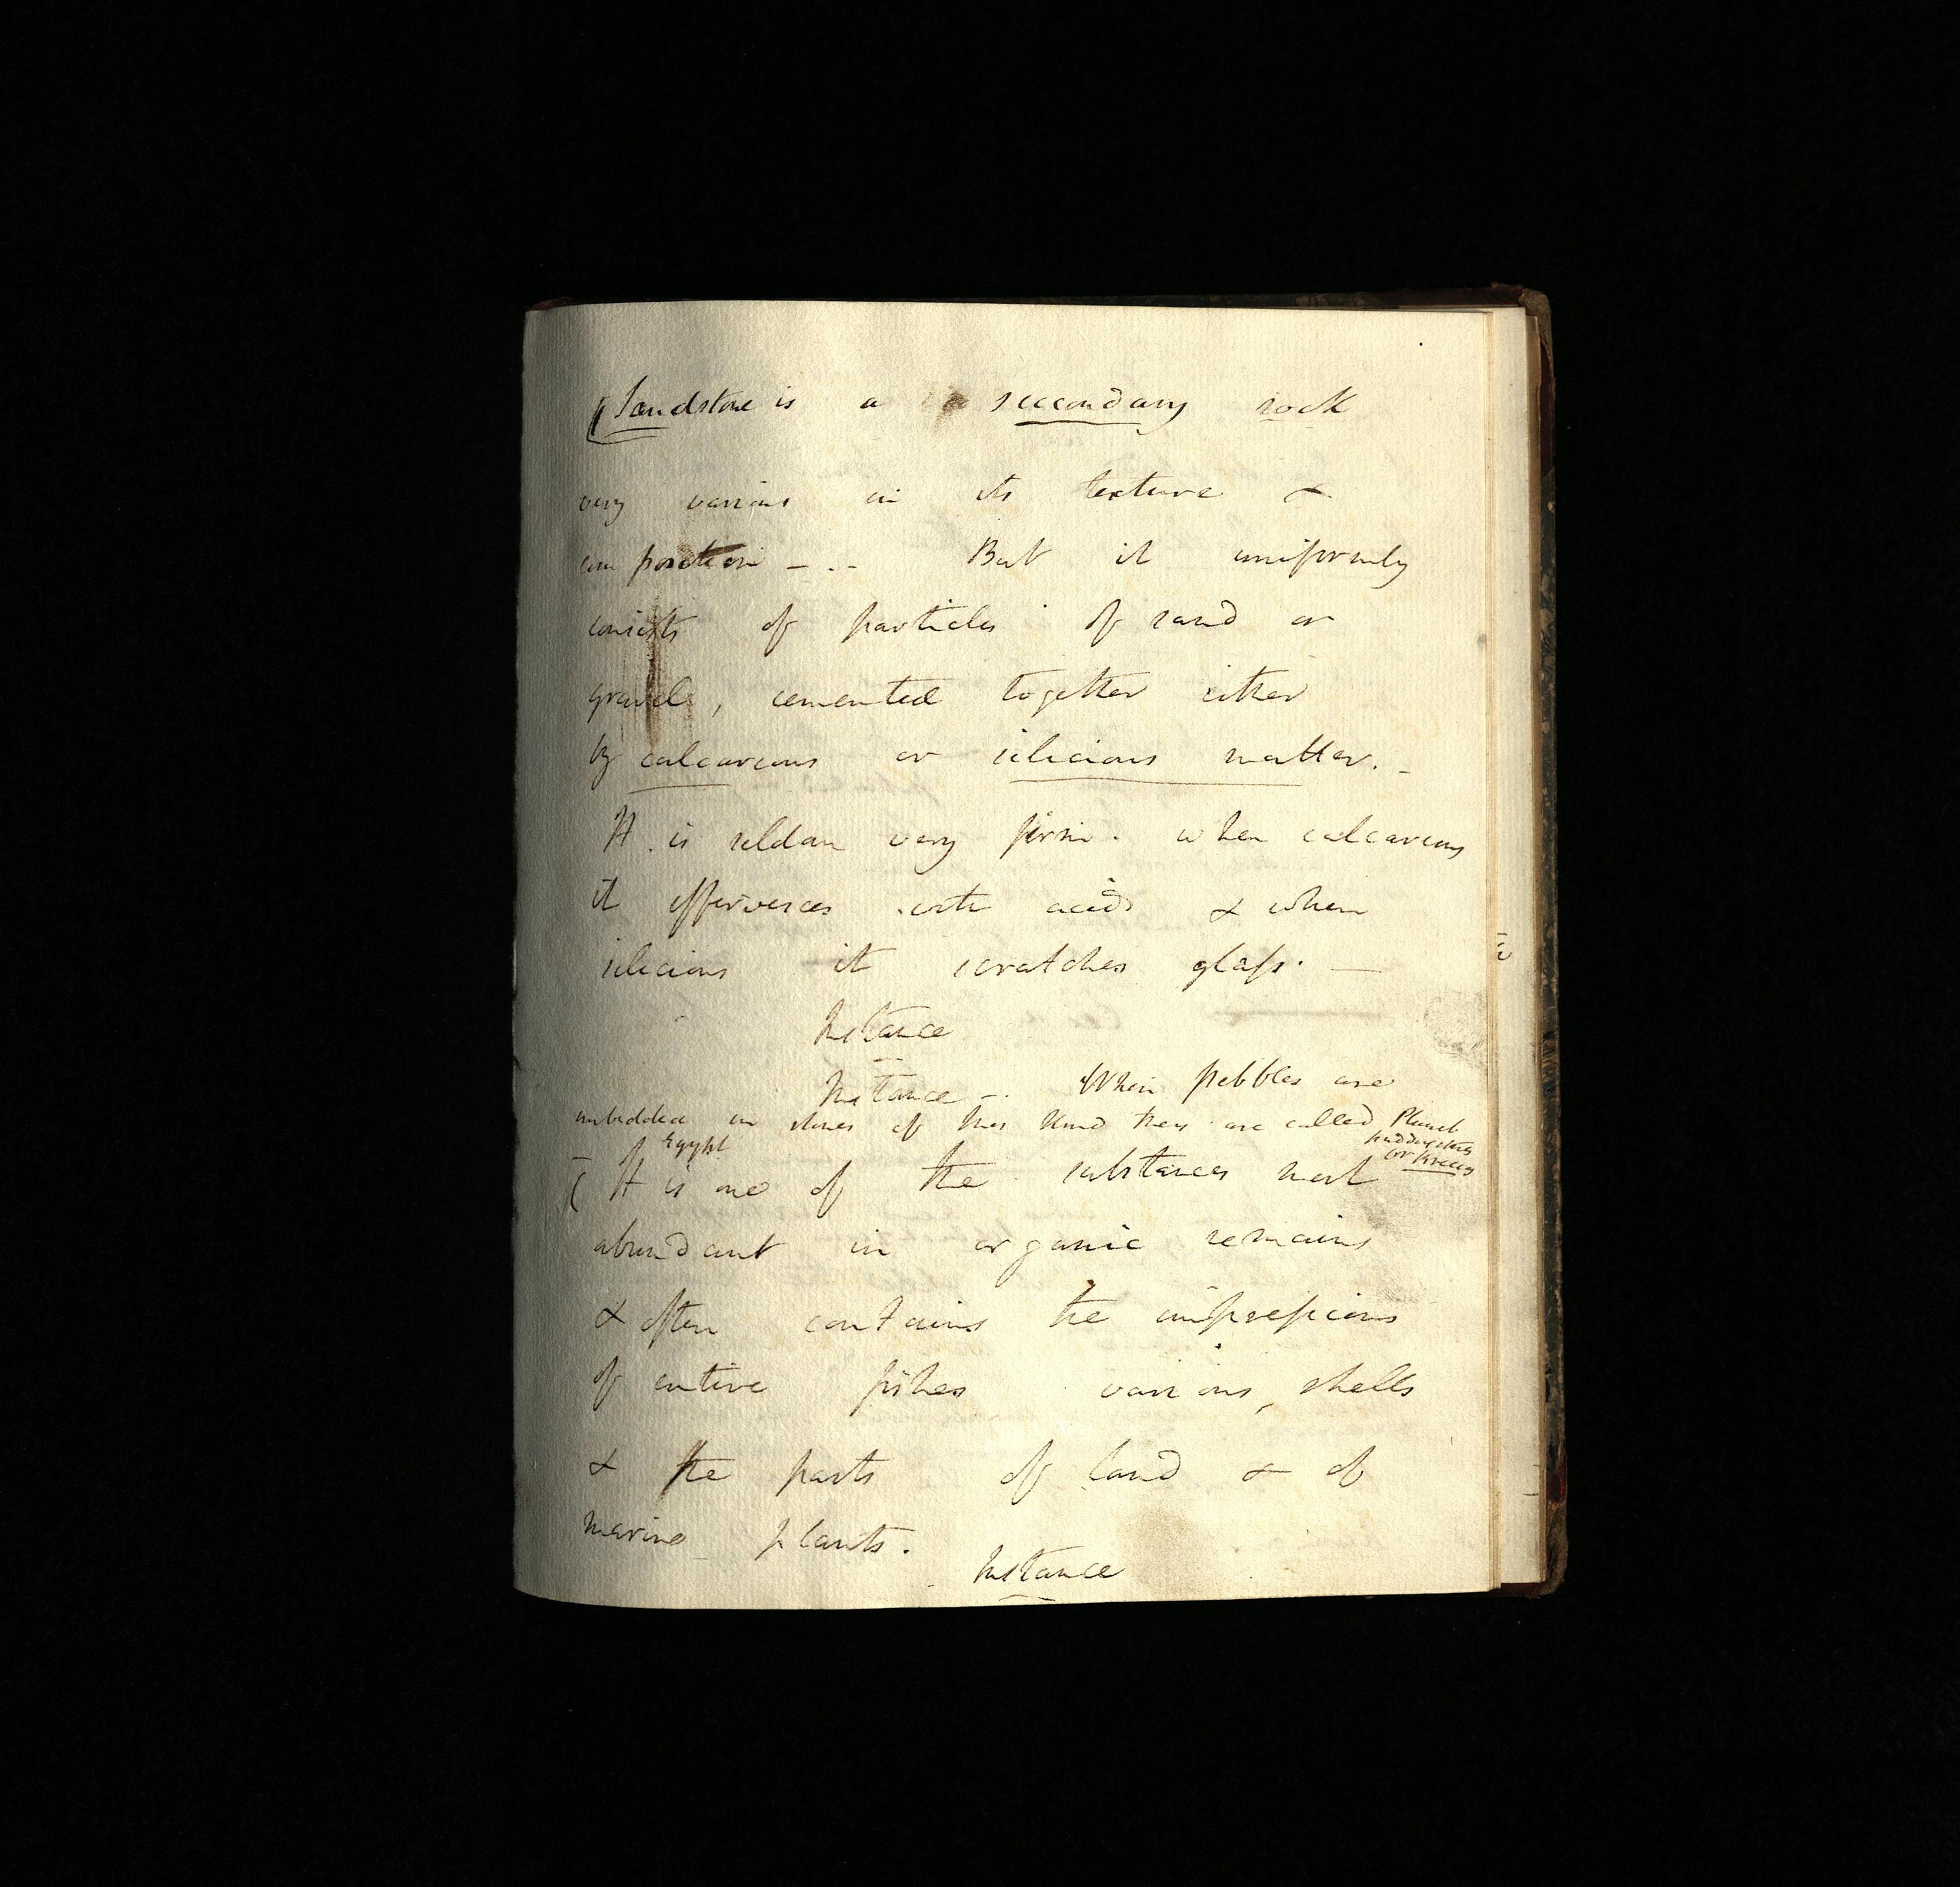 Sandstone is a secondary rock
very various in its texture &
composition - . - But it uniformly
consists of particles of sand or
gravel, cemented together either
by calcareous or silicious matter. -
It is seldom very firm. when calcareous
it effervesces with acids & when
silicious it scratches glass. —
Instance
Instance -. When pebbles are
imbedded in stones of this kind they are called Plumb
puddingstone
or Breccia
of Egypt
( It is one of the substances most
abundant in organic remains
& often contains the impressions
of entire fishes various, shells
& the parts of land & of
marine plants.
Instance